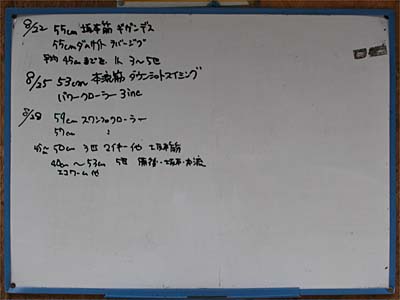 8/22 55cm 坂本筋 ギガンデス
55cm ダムサイト ラバージグ
平均 45cmまでを 1人 3〜5匹
8/25 53cm 本流筋 ダウンショットスイミング
パワークローラー 3inc
8/28 59cm スワンプクローラー
57cm 〃
45〜50cm 3匹 マイキー他
40cm〜53cm 5匹
エコワーム他